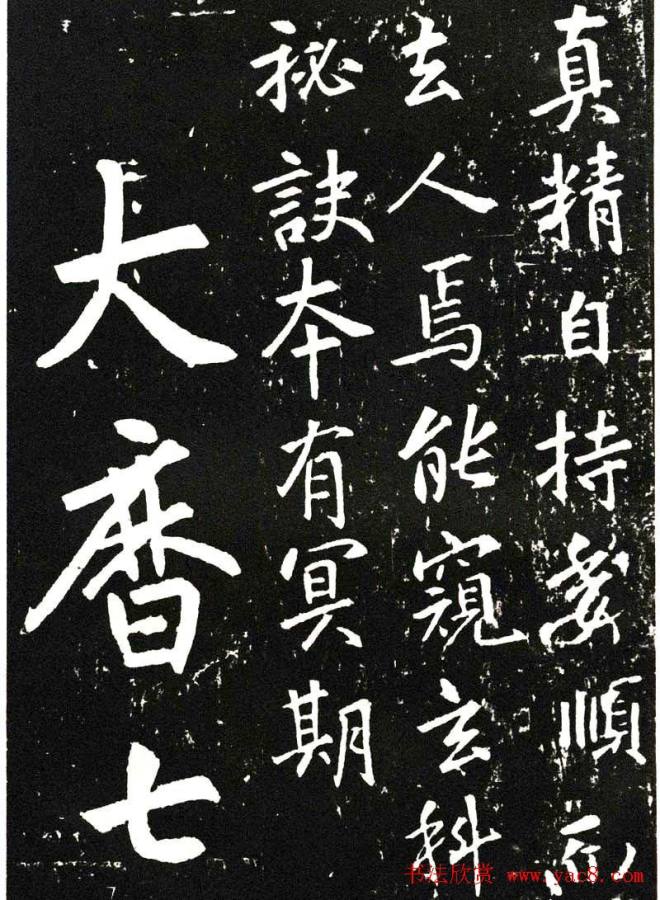 真精自持委順
去人焉能窺玄科
祕訣本有冥期
大曆七
书法欣赏 www.yac8.com